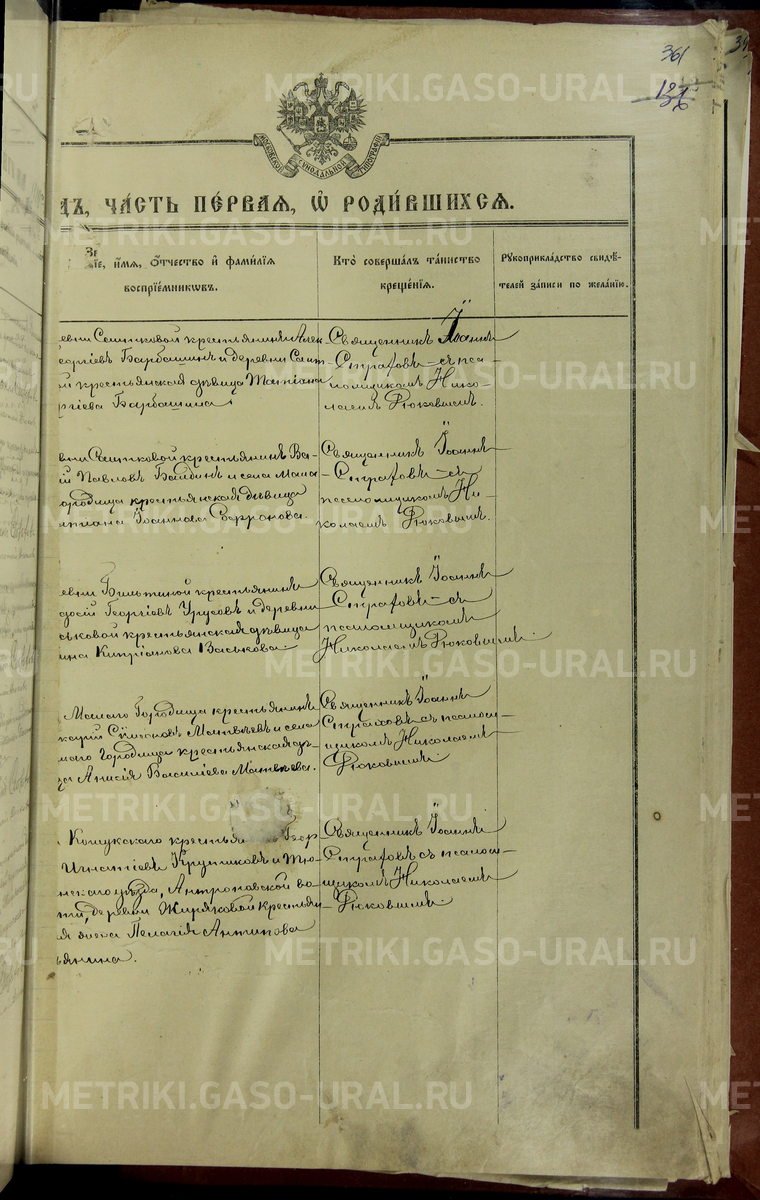 361
126
МОСКОВСКОЙ СѴНОДАЛЬНОЙ ТИПОГРАФІИ
дъ, ча́сть пе́рваѧ, ѡ҆ роди́вшихсѧ.
Зв
їе, и҆́мѧ, ѻ҆́тчество и҆ фами́лїѧ
воспрїе́мникѡвъ.
Кто̀ соверша́лъ та́инство
креще́нїѧ.
Рꙋкоприкла́дство свидѣ́-
телей за́писи по жела́нїю.
евни Саитковой крестьянинъ Алек
еоргіевъ Барбашинъ и деревни Саит-
й крестьянская дѣвица Татіана
ргіева Барбашина
Священникъ Іоаннъ
Страховъ съ пса-
ломщикомъ Нико-
лаемъ Рюковымъ.
вни Саитковой крестьянинъ Ва-
ій Павловъ Бабинъ и села Мала
ородища крестьянская дѣвица
Іоаннова
Священникъ Іоаннъ
Страховъ съ
псаломщикомъ Ни-
колаемъ Рюковымъ.
евни крестьянинъ
досій Георгіевъ Урусовъ и деревни
ськовой крестьянская дѣвица
ина Кипріанова Васькова.
Священникъ Іоаннъ
Страховъ съ
псаломщикомъ
Николаемъ Рюковымъ.
Малаго Городища крестьянинъ
Симоновъ Матвѣевъ и села
лаго Городища крестьянская дѣ-
ца Анисія Василіева Матвѣева.
Священникъ Іоаннъ
Страховъ съ псалом-
щикомъ Николаемъ
Рюковымъ.
Кошукскаго крестья Геор
Игнатіевъ Крутиковъ и Тю-
нскаго уѣзда, Антроповской во-
ти, деревни Жиряковой крестьян
я жена Пелагія Антипова
ьянина.
Священникъ Іоаннъ
Страховъ съ псалом-
щикомъ Николаемъ
Рюковымъ.
METRIKI.GASO-URAL.RU